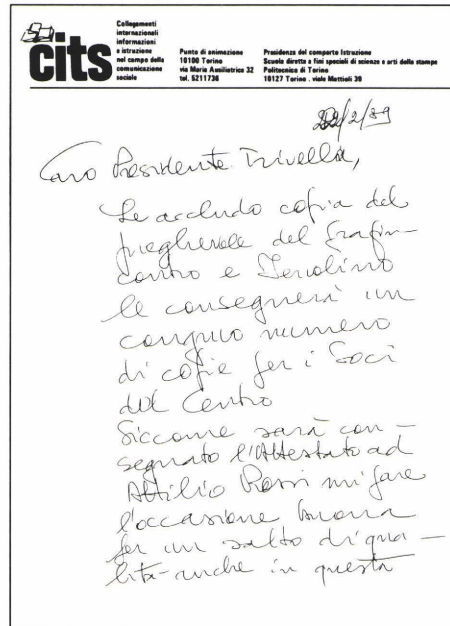 cits
Collegamenti
internazionali
informazioni
e istruzione
nel campo della
comunicazione
sociale
Punto di animazione
10100 Torino
via Maria Ausiliatrice 32
tel. 5211736
Presidenza del comparto Istruzione
Scuola diretta a fini speciali di scienze e arti della stampa
Politecnico di Torino
10127 Torino . viale Mattioli 39
22/2/89
Caro Presidente Trivella,
Le accludo copia del
pieghevole del Grafin-
contro e
le consegnerà un
congruo numero
di copie per i Soci
del Centro
Siccome sarà con-
segnato l'Attestato ad
Attilio Rossi mi pare
l'occasione buona
per un salto di qua-
lità-anche in questa